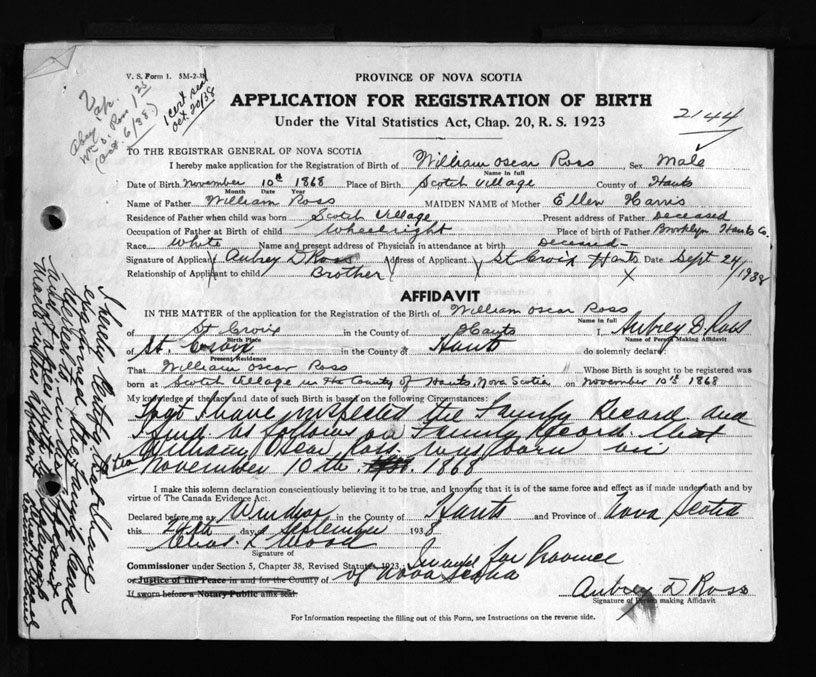 V. S. Form 1. 5M-2-38
PROVINCE OF NOVA SCOTIA
APPLICATION FOR REGISTRATION OF BIRTH
Under the Vital Statistics Act, Chap. 20, R. S. 1923
2144
1 cert sent
Oct. 20/38
TO THE REGISTRAR GENERAL OF NOVA SCOTIA
I hereby make application for the Registration of Birth of William Oscar Ross Sex Male
Name in full
Date of Birth November 10th 1868 Place of Birth Scotch Village County of Hants
Month Date Year
Name of Father William Ross MAIDEN NAME of Mother Ellen Harris
Residence of Father when child was born Scotch Village Present address of Father Deceased
Occupation of Father at Birth of child Wheelright Place of birth of Father Brooklyn Hants Co.
Race White Name and present address of Physician in attendance at birth Deceased
Signature of Applicant Aubrey D Ross Address of Applicant St Croix Hants Date Sept 24/1938
Relationship of Applicant to child Brother
AFFIDAVIT
IN THE MATTER of the application for the Registration of the Birth of William Oscar Ross
Name in full
of St Croix in the County of Hants I, Aubrey D. Ross
Birth Place Name of Person Making Affidavit
of St. Croix in the County of Hants do solemnly declare:
Present Residence
That William Oscar Ross Whose Birth is sought to be registered was
born at Scotch Village in the County of Hants, Nova Scotia on November 10th 1868
My knowledge of the fact and date of such Birth is based on the following Circumstances:
That I have inspected the Family Record and
I find as follows on Family Record that
William Oscar Ross was born on
November 10th 1868
I make this solemn declaration conscientiously believing it to be true, and knowing that it is of the same force and effect as if made under oath and by
virtue of The Canada Evidence Act.
Declared before me at Windsor in the County of Hants and Province of Nova Scotia
this 24th day of September 1938
Chas. L Wood
Signature of
Commissioner under Section 5, Chapter 38, Revised Statutes, 1923, In and for Province
or Justice of the Peace in and for the County of of Nova Scotia
If sworn before a Notary Public affix seal
Aubrey D Ross
Signature of Person making Affidavit
For Information respecting the filling out of this Form, see Instructions on the reverse side.
I hereby Certify that I have